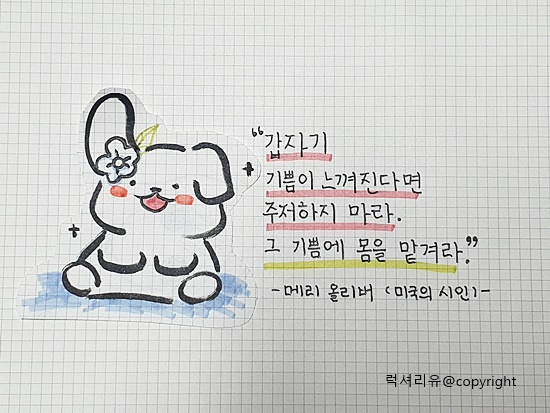 “갑자기
기쁨이 느껴진다면
주저하지 마라.
그 기쁨에 몸을 맡겨라.”
-메리 올리버 (미국의 시인)-
럭셔리유@copyright